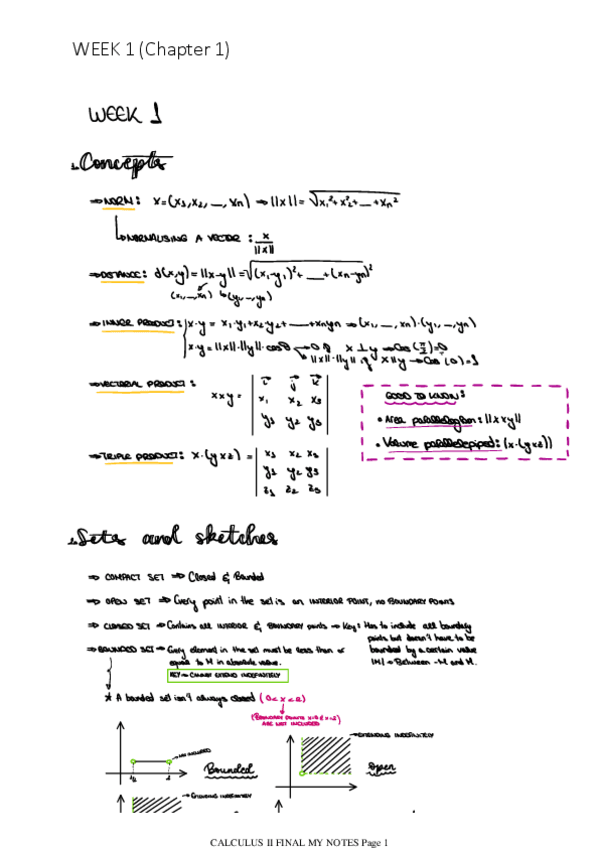 WEEK 1 (Chapter 1)
WEEK 1
Concepts
⇒ NORM: x=(x₁,x₂,—,xn) ⇒ ||x|| = √x₁²+x₂²+—+xn²
NORMALISING A VECTOR : x/||x||
⇒ DISTANCE: d(x,y)=||x-y||=√(x₁-y₁)²+—+(xn-yn)²
(x₁,—,xn) (y₁,—,yn)
⇒ INNER PRODUCT: x·y = x₁·y₁+x₂·y₂+——+xnyn ⇒ (x₁,—,xn)·(y₁,—,yn)
x·y=||x||·||y||·cosθ → 0 if x⊥y → cos(π/2)=0
||x||·||y|| if x∥y → cos(0)=1
⇒ VECTORIAL PRODUCT: x×y = | i j k |
| x₁ x₂ x₃ |
| y₁ y₂ y₃ |
GOOD TO KNOW:
• Area parallelogram: ||x×y||
• Volume parallelepiped: (x·(y×z))
⇒ TRIPLE PRODUCT: x·(y×z) = | x₁ x₂ x₃ |
| y₁ y₂ y₃ |
| z₁ z₂ z₃ |
Sets and sketches
⇒ COMPACT SET ⇒ Closed & Bounded
⇒ OPEN SET ⇒ Every point in the set is an INTERIOR POINT, no BOUNDARY POINTS
⇒ CLOSED SET ⇒ Contains all INTERIOR & BOUNDARY points ⇒ Key: Has to include all boundary
points but doesn't have to be
bounded by a certain value
⇒ BOUNDED SET ⇒ Every element in the set must be less than or
equal to M in absolute value.
|M| ⇒ Between -M and M.
KEY ⇒ CANNOT EXTEND INDEFINITELY
* A bounded set isn't always closed (0<x<2)
(BOUNDARY POINTS x=0 & x=2)
ARE NOT INCLUDED
NOT INCLUDED
Bounded
EXTENDING INDEFINITELY
Open
EXTENDING INDEFINITELY
CALCULUS II FINAL MY NOTES Page 1